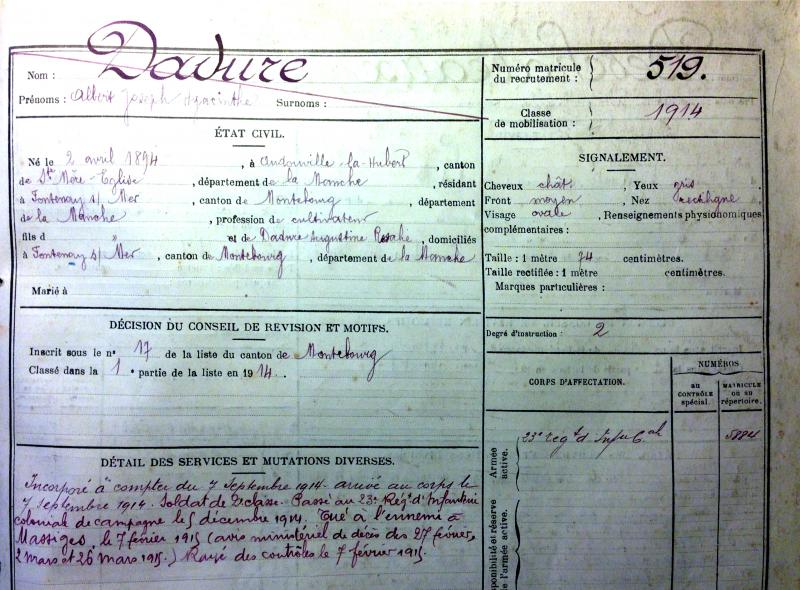 Nom : Dadure
Prénoms : Albert Joseph Hyacinthe Surnoms :
ÉTAT CIVIL.
Né le 2 avril 1894, à Audouville-la-Hubert, canton
de Ste Mère-Eglise, département de la Manche, résidant
à Fontenay s/ Mer, canton de Montebourg, département
de la Manche, profession de cultivateur
fils d " et de Dadure Augustine Rosalie, domiciliés
à Fontenay s/ Mer, canton de Montebourg, département de la Manche
Marié à
DÉCISION DU CONSEIL DE REVISION ET MOTIFS.
Inscrit sous le n° 17 de la liste du canton de Montebourg
Classé dans la 1e partie de la liste en 1914.
DÉTAIL DES SERVICES ET MUTATIONS DIVERSES.
Incorporé à compter du 7 Septembre 1914. arrivé au corps le
7 septembre 1914. Soldat de 2e classe. Passé au 23e Régt d'Infanterie
colonial de campagne le 5 décembre 1914. Tué à l'ennemi à
Massiges, le 7 février 1915 (avis ministériel de décès des 27 février,
2 mars et 26 mars 1915.) Rayé des contrôles le 7 février 1915.
Numéro matricule
du recrutement : 519.
Classe
de mobilisation : 1914
SIGNALEMENT.
Cheveux chât. Yeux gris
Front moyen, Nez rectiligne
Visage ovale, Renseignements physionomiques
complémentaires :
Taille : 1 mètre 74 centimètres.
Taille rectifiée : 1 mètre centimètres.
Marques particulières :
Degré d'instruction : 2
CORPS D'AFFECTATION.
NUMÉROS
au
CONTRÔLE
spécial.
MATRICULE
ou au
répertoire.
Armée
active.
23e Régt d'Infie Cale
5884
Disponibilité et réserve
de l'armée active.